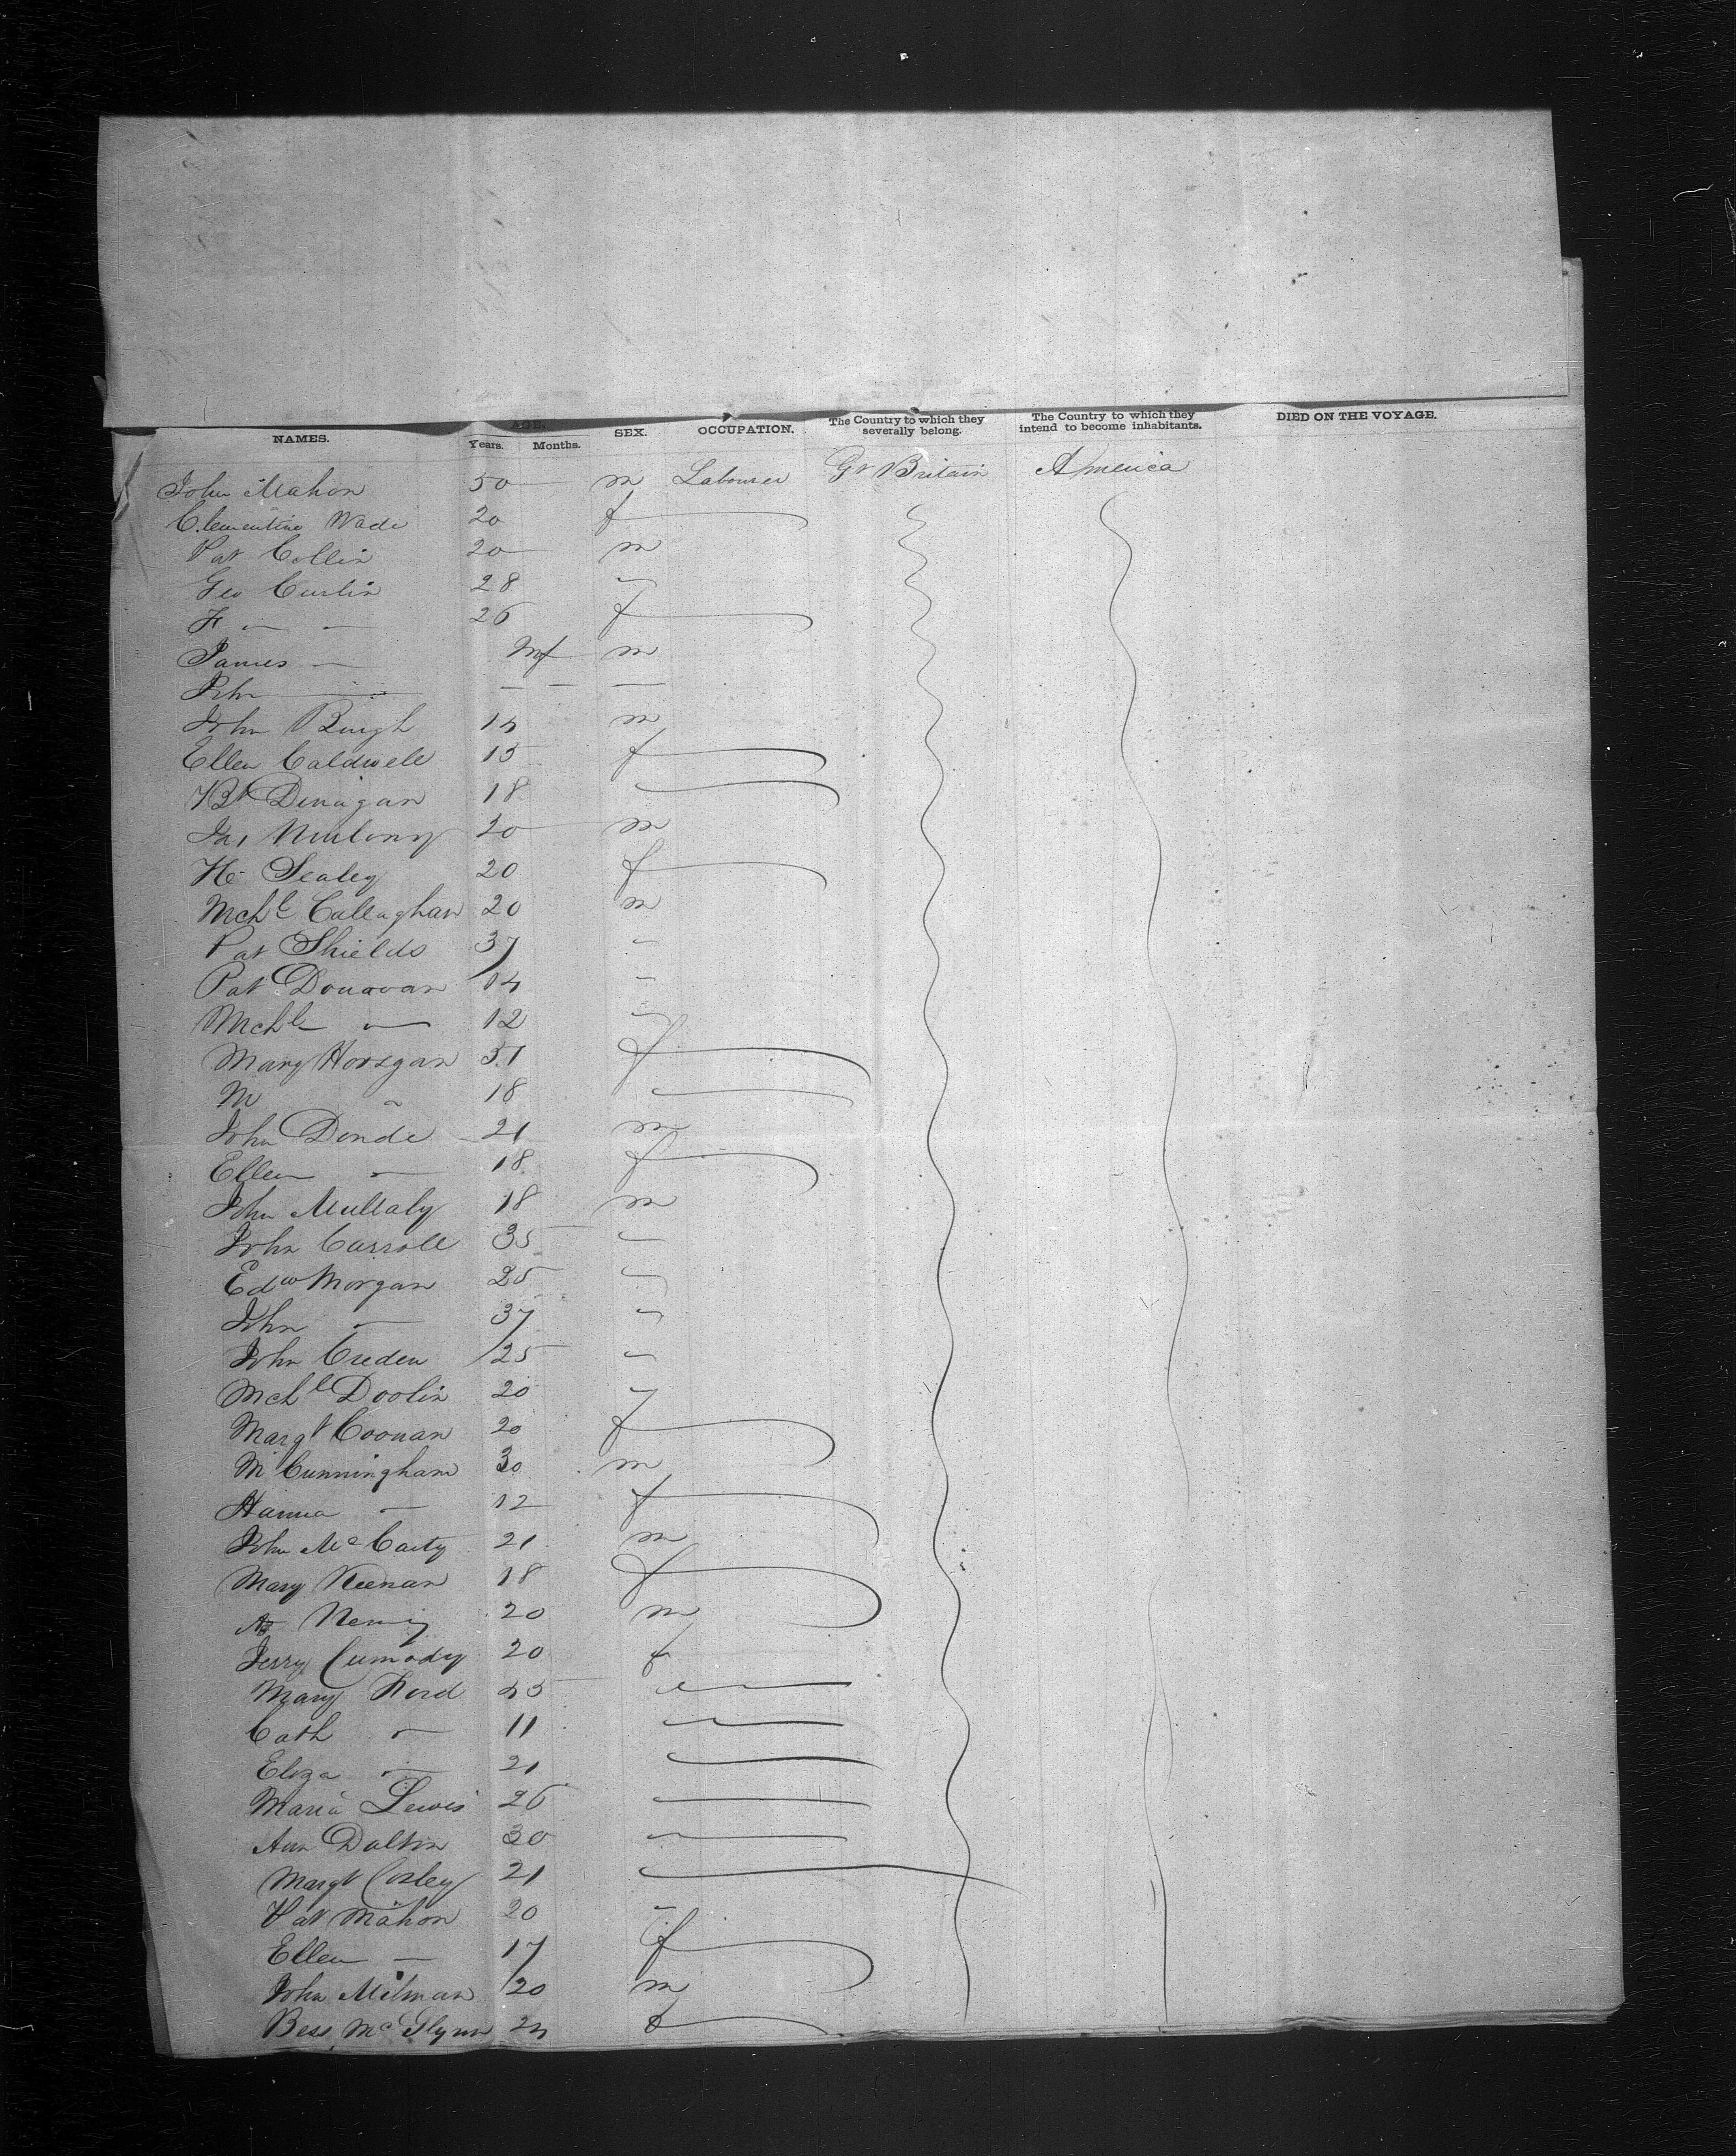 NAMES. AGE. Years. Months. SEX. OCCUPATION. The Country to which they severally belong. The Country to which they intend to become inhabitants. DIED ON THE VOYAGE.
John Mahon 50 m Labourer Gt Britain America
Clementine Wade 20 f
Pat Collin 20 m
Geo Curlin 28 "
F — — 26 f
James — Inf m
John — — — —
John Burgh 14 m
Ellen Caldwell 15 f
Bt Dinagan 18
Jas 20 m
H Sealey 20 f
Mchl Callaghan 20 m
Pat Shields 37 "
Pat Donovan 14 "
Mchl — 12 "
Mary Horsgan 51 f
M " 18
John Donde 21 m
Ellen — 18 f
John Mullaly 18 m
John Carroll 35 "
Edw Morgan 25 "
John — 37 "
John Creden 25 "
Mchl Doolin 20 "
Margt Coonan 20 f
M Cunningham 30 m
Hanna — 12 f
John McCarty 21 m
Mary Keenan 18 f
20 m
Jerry Cumody 20 f
Mary Ford 45 "
Cath — 11 "
Eliza — 21
Maria Lewis 26
Ann Dalton 30
Margt Cosley 21
Pat Mahon 20 "
Ellen — 17 f
John Milman 20 m
Bess McGlynn 24 f